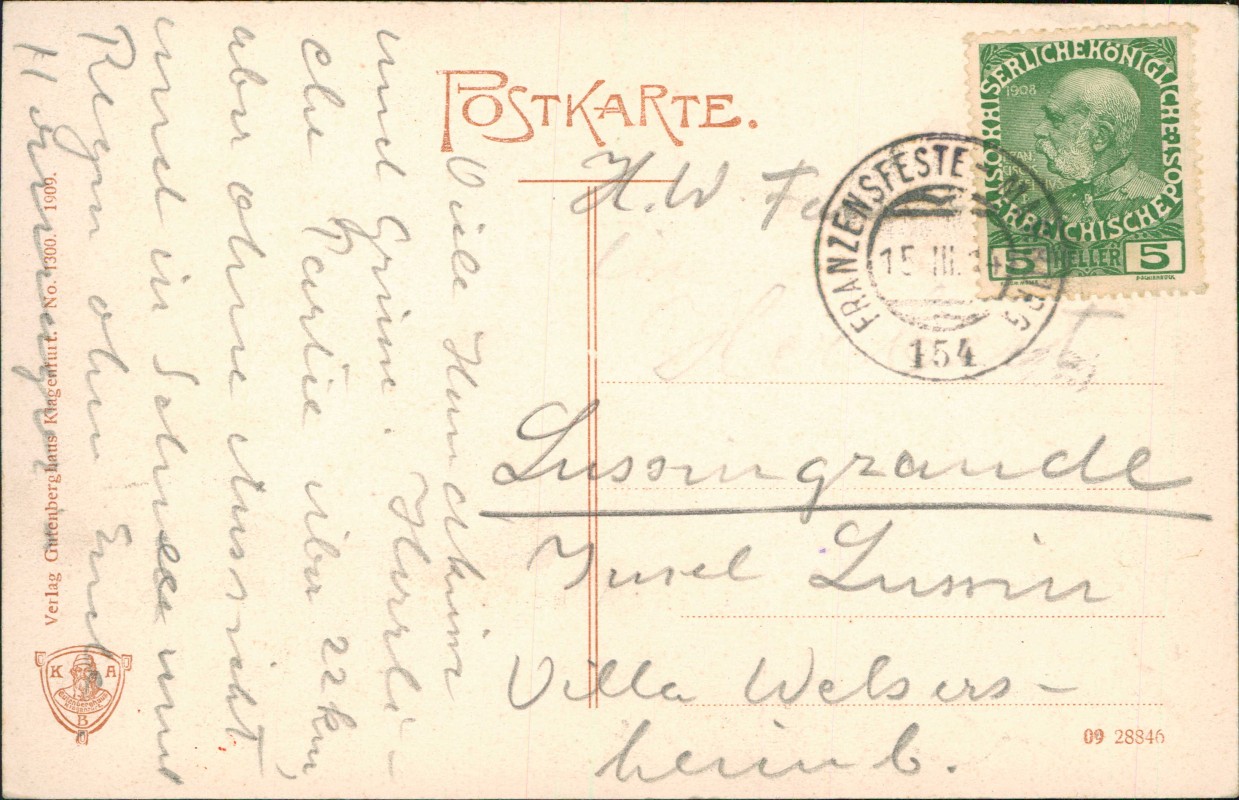 POSTKARTE.
KAISERLICHE KÖNIGLICHE
ÖSTERREICHISCHE POST
1908
5 HELLER 5
FRANZENSFESTE
15 III.
154
H. W.
Lussingrande
Insel Lussin
Villa Welsers-
heimb.
Viele
und Grüsse. Herrli-
che Partie über 22 km,
aber ohne Aussicht
und in Schnee und
Regen ohne Ende
Verlag Gutenberghaus Klagenfurt. No. 1300. 1909.
K A B
Gutenberghaus
Klagenfurt
09 28846